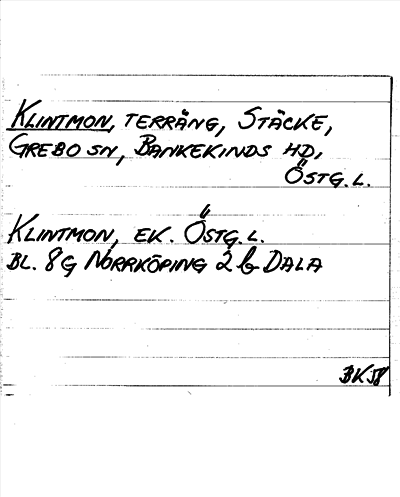 KLINTMON, TERRÄNG, STÄCKE,
GREBO SN, BANKEKINDS HD,
ÖSTG. L.
KLINTMON, EK. ÖSTG. L.
BL. 8G NORRKÖPING 2 b DALA
BK 58